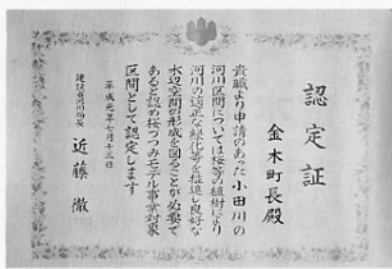 認定証
金木町長殿
貴職より申請のあった小田川の
河川区間については桜等の植樹により
河川の適正な緑化等を推進し良好な
水辺空間の形成を図ることが必要で
あると認め桜つつみモデル事業対象
区間として認定します
平成元年七月十三日
建設省河川局長 近藤徹